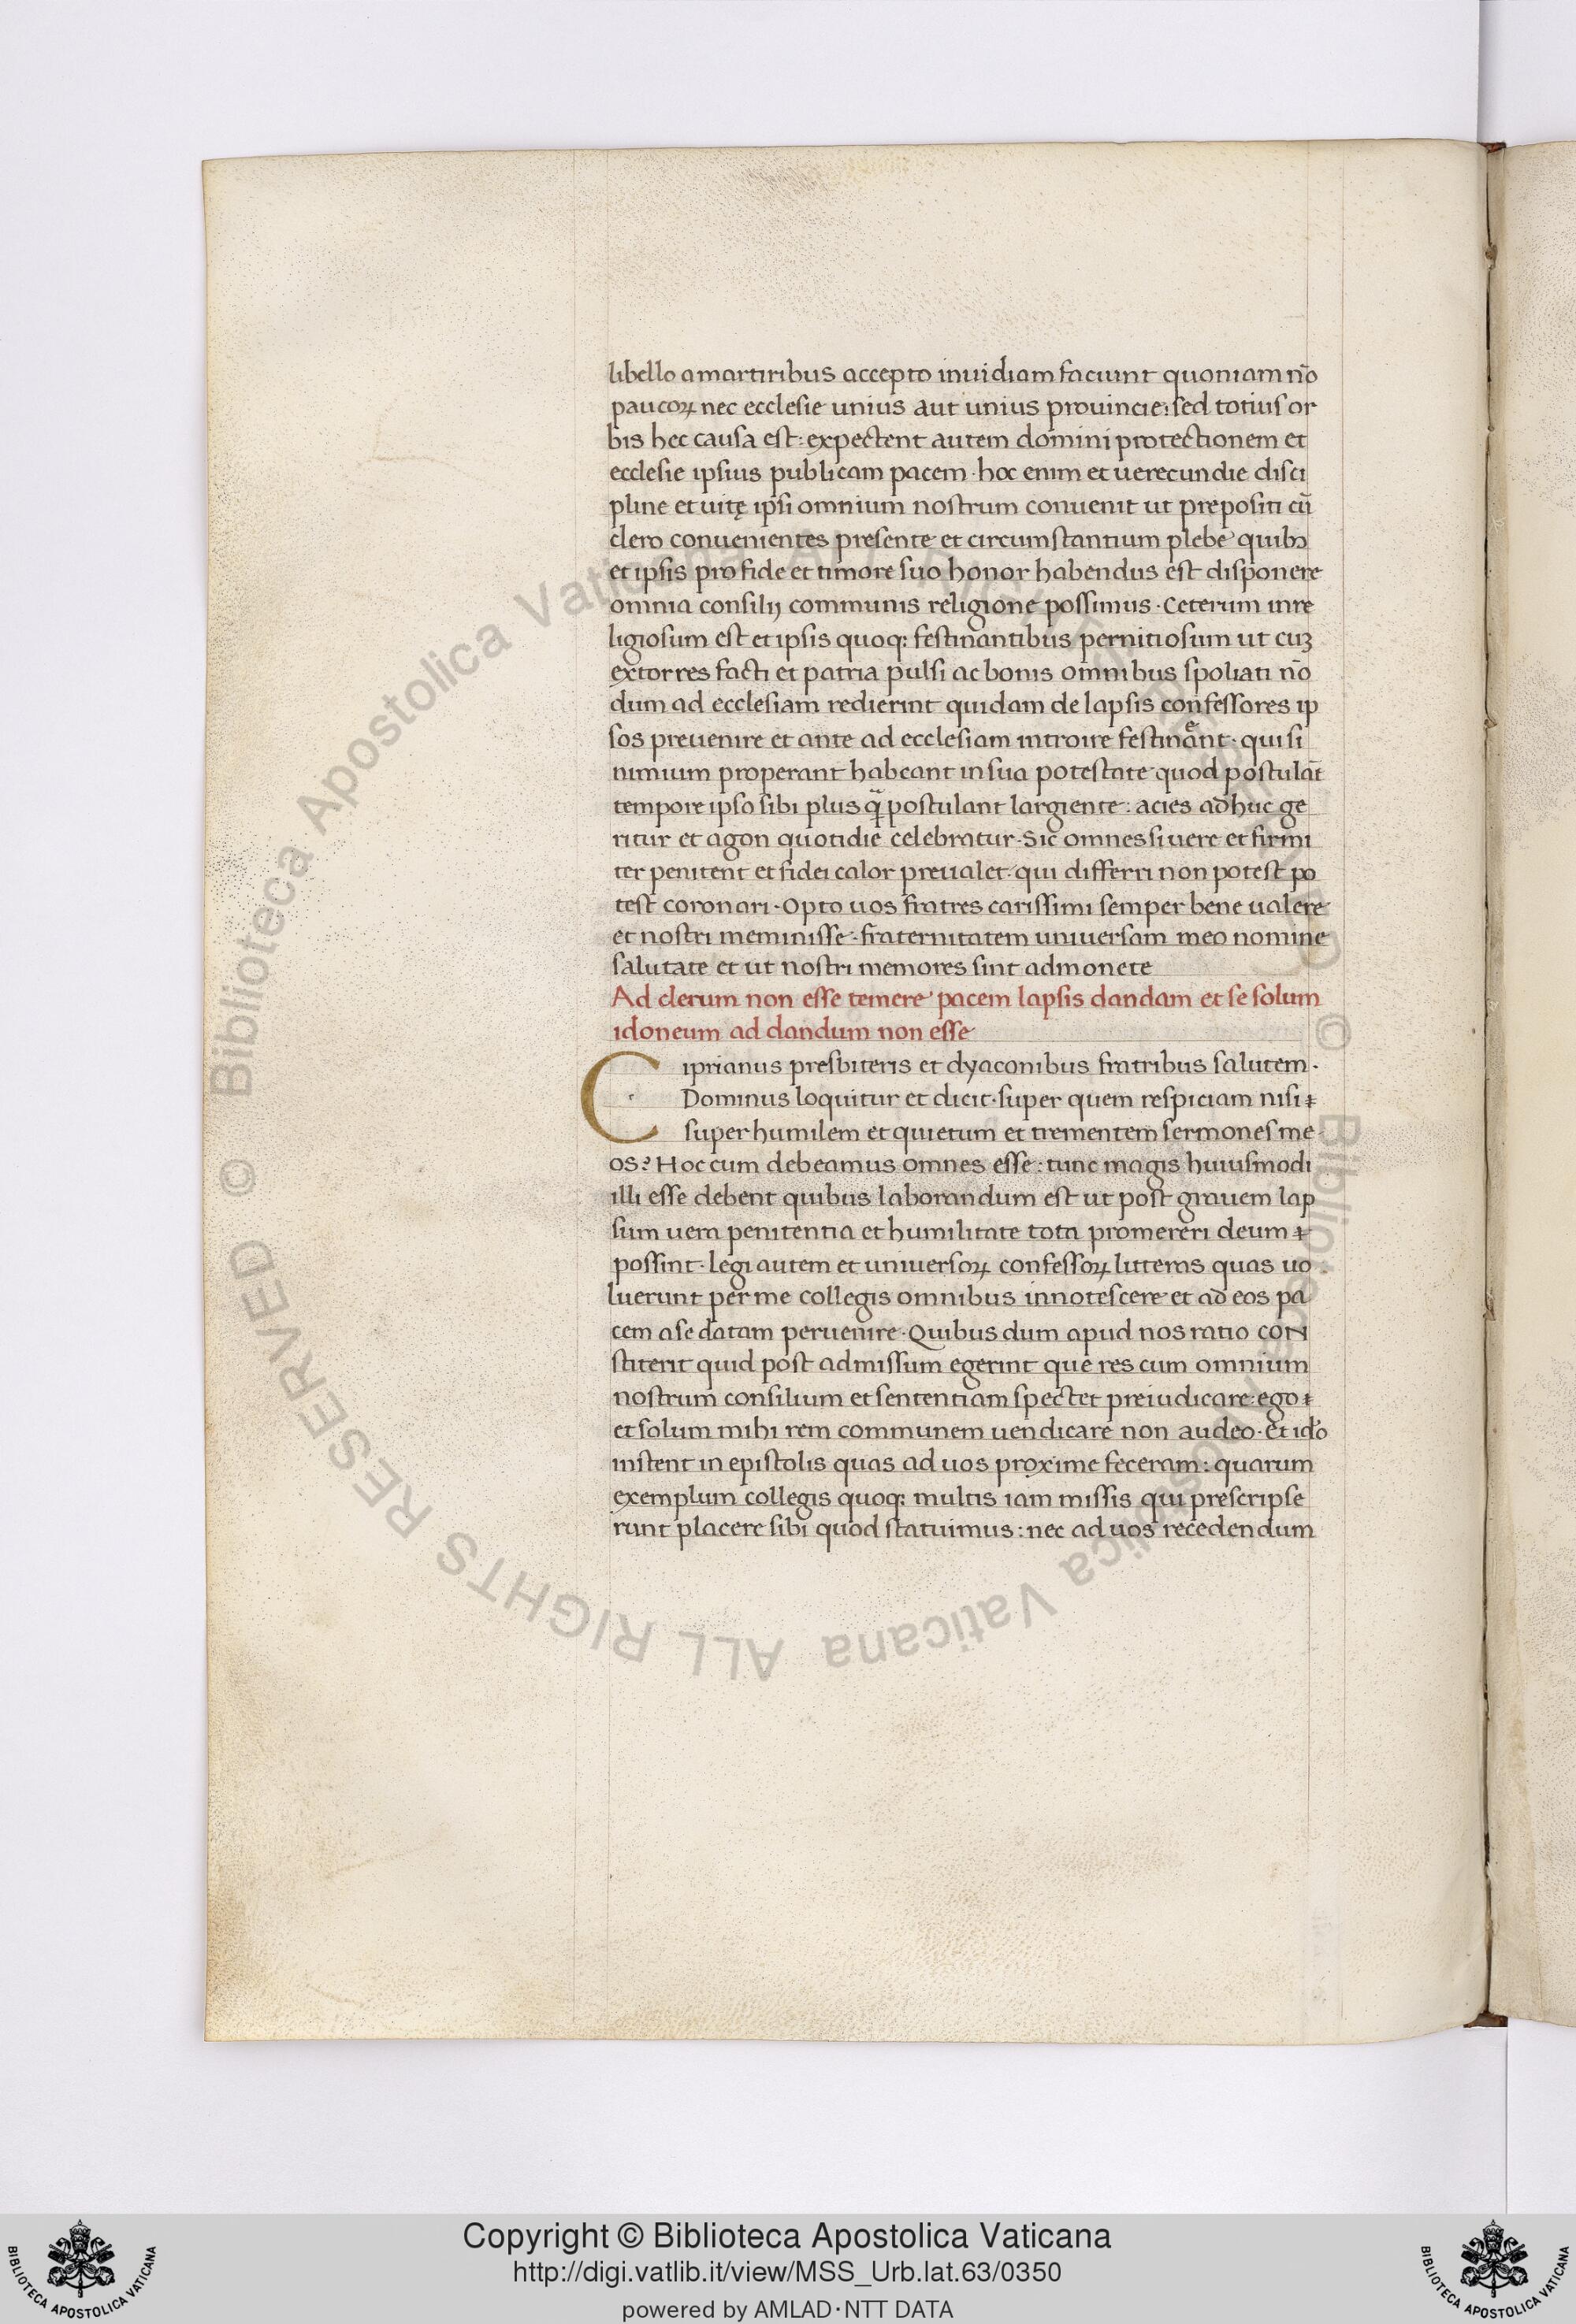 libello a martiribus accepto inuidiam faciunt quoniam nō
paucoꝝ nec ecclesie unius aut unius prouincie: sed totius or
bis hec causa est: expectent autem domini protectionem et
ecclesie ipsius publicam pacem · hoc enim et uerecundie disci
pline et uitę ipsi omnium nostrum conuenit ut prepositi cū
clero conuenientes presente et circumstantium plebe quibꝫ
et ipsis pro fide et timore suo honor habendus est disponere
omnia consilij communis religione possimus · Ceterum inre
ligiosum est et ipsis quoq: festinantibus pernitiosum ut cuꝫ
extorres facti et patria pulsi ac bonis omnibus spoliati nō
dum ad ecclesiam redierint quidam de lapsis confessores ip
sos preuenire et ante ad ecclesiam introire festinẽnt · qui si
nimium properant habeant in sua potestate quod postulāt
tempore ipso sibi plus q̃ postulant largiente: acies adhuc ge
ritur et agon quotidie celebratur · Sic omnes si uere et firmi
ter penitent et fidei calor preualet · qui differri non potest po
test coronari · Opto uos fratres carissimi semper bene ualere
et nostri meminisse · fraternitatem uniuersam meo nomine
salutate et ut nostri memores sint admonete
Ad clerum non esse temere pacem lapsis dandam et se solum
idoneum ad dandum non esse
Ciprianus presbiteris et dyaconibus fratribus salutem ·
Dominus loquitur et dicit · super quem respiciam nisi
super humilem et quietum et trementem sermones me
os? Hoc cum debeamus omnes esse: tunc magis huiusmodi
illi esse debent quibus laborandum est ut post grauem lap
sum uera penitentia et humilitate tota promereri deum
possint · legi autem et uniuersoꝝ confessoꝝ litteras quas uo
luerunt per me collegis omnibus innotescere et ad eos pa
cem a se datam peruenire · Quibus dum apud nos ratio coN
stiterit quid post admissum egerint que res cum omnium
nostrum consilium et sententiam spectet preiudicare: ego
et solum mihi rem communem uendicare non audeo · Et idō
instent in epistolis quas ad uos proxime feceram: quarum
exemplum collegis quoq: multis iam missis qui prescripse
runt placere sibi quod statuimus: nec ad uos recedendum
© Biblioteca Apostolica Vaticana ALL RIGHTS RESERVED
© Biblioteca Apostolica Vaticana ALL RIGHTS RESERVED
Copyright © Biblioteca Apostolica Vaticana
http://digi.vatlib.it/view/MSS_Urb.lat.63/0350
powered by AMLAD·NTT DATA
BIBLIOTECA APOSTOLICA VATICANA
BIBLIOTECA APOSTOLICA VATICANA